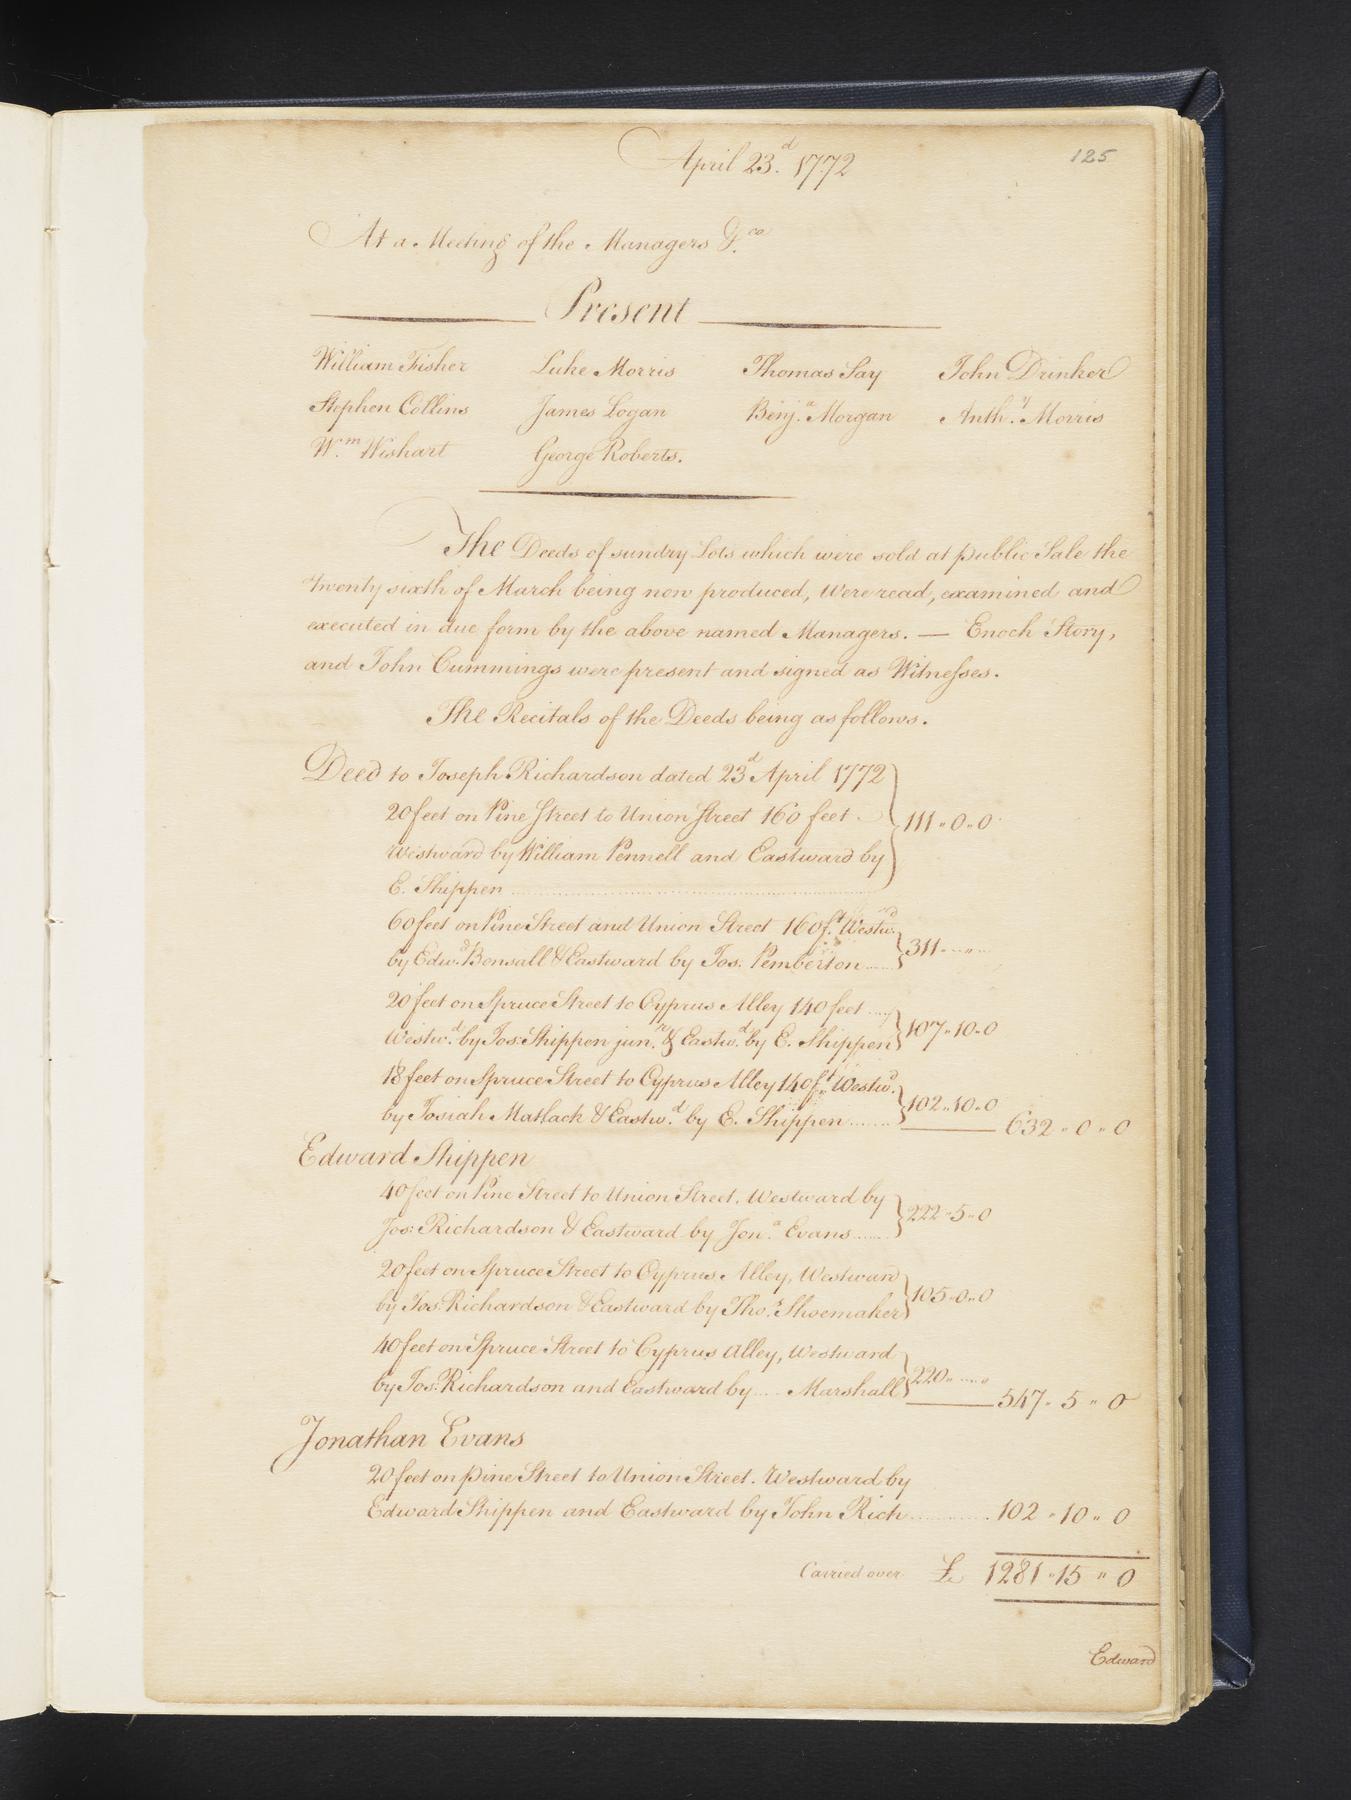 April 23.d 1772
125
At a Meeting of the Managers &.ca
Present
William Fisher Luke Morris Thomas Say John Drinker
Stephen Collins James Logan Benj.a Morgan Anth.y Morris
W.m Wishart George Roberts.
The Deeds of sundry Lots which were sold at public Sale the
twenty sixth of March being now produced, Were read, examined and
executed in due form by the above named Managers. — Enoch Story,
and John Cummings were present and signed as Witnesses.
The Recitals of the Deeds being as follows.
Deed to Joseph Richardson dated 23d April 1772
20 feet on Pine Street to Union Street 160 feet
Westward by William Pennell and Eastward by
E. Shippen 111 " 0 " 0
60 feet on Pine Street and Union Street 160 f.t Westw.rd
by Edw.d Bonsall & Eastward by Jos: Pemberton 311 " "
20 feet on Spruce Street to Cyprus Alley 140 feet
Westw.d by Jos: Shippen jun.r & Eastw.d by E. Shippen 107 " 10 " 0
18 feet on Spruce Street to Cyprus Alley 140 f.t Westw.d
by Josiah Matlack & Eastw.d by E. Shippen 102 " 10 " 0 632 " 0 " 0
Edward Shippen
40 feet on Pine Street to Union Street. Westward by
Jos: Richardson & Eastward by Jon.a Evans 222 " 5 " 0
20 feet on Spruce Street to Cyprus Alley, Westward
by Jos: Richardson & Eastward by Tho.s Shoemaker 105 " 0 " 0
40 feet on Spruce Street to Cyprus Alley, Westward
by Jos: Richardson and Eastward by .... Marshall 220 " " 547 " 5 " 0
Jonathan Evans
20 feet on Pine Street to Union Street. Westward by
Edward Shippen and Eastward by John Rich 102 " 10 " 0
Carried over £ 1281 " 15 " 0
Edward